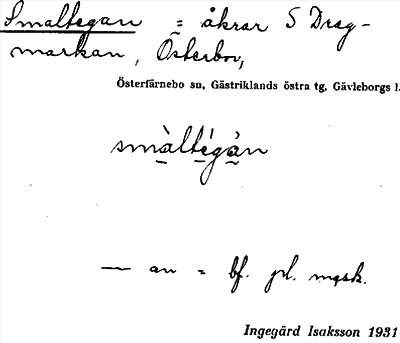 Smaltegan = åkrar S Drag-
markan, Österbor,
Österfärnebo sn, Gästriklands östra tg, Gävleborgs l.
smàltégàn
— an = bf. pl. mask.
Ingegärd Isaksson 1931